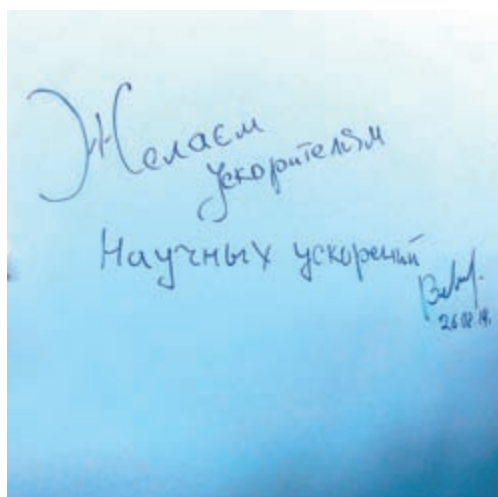 Желаем
ускорителям
Научных ускорений